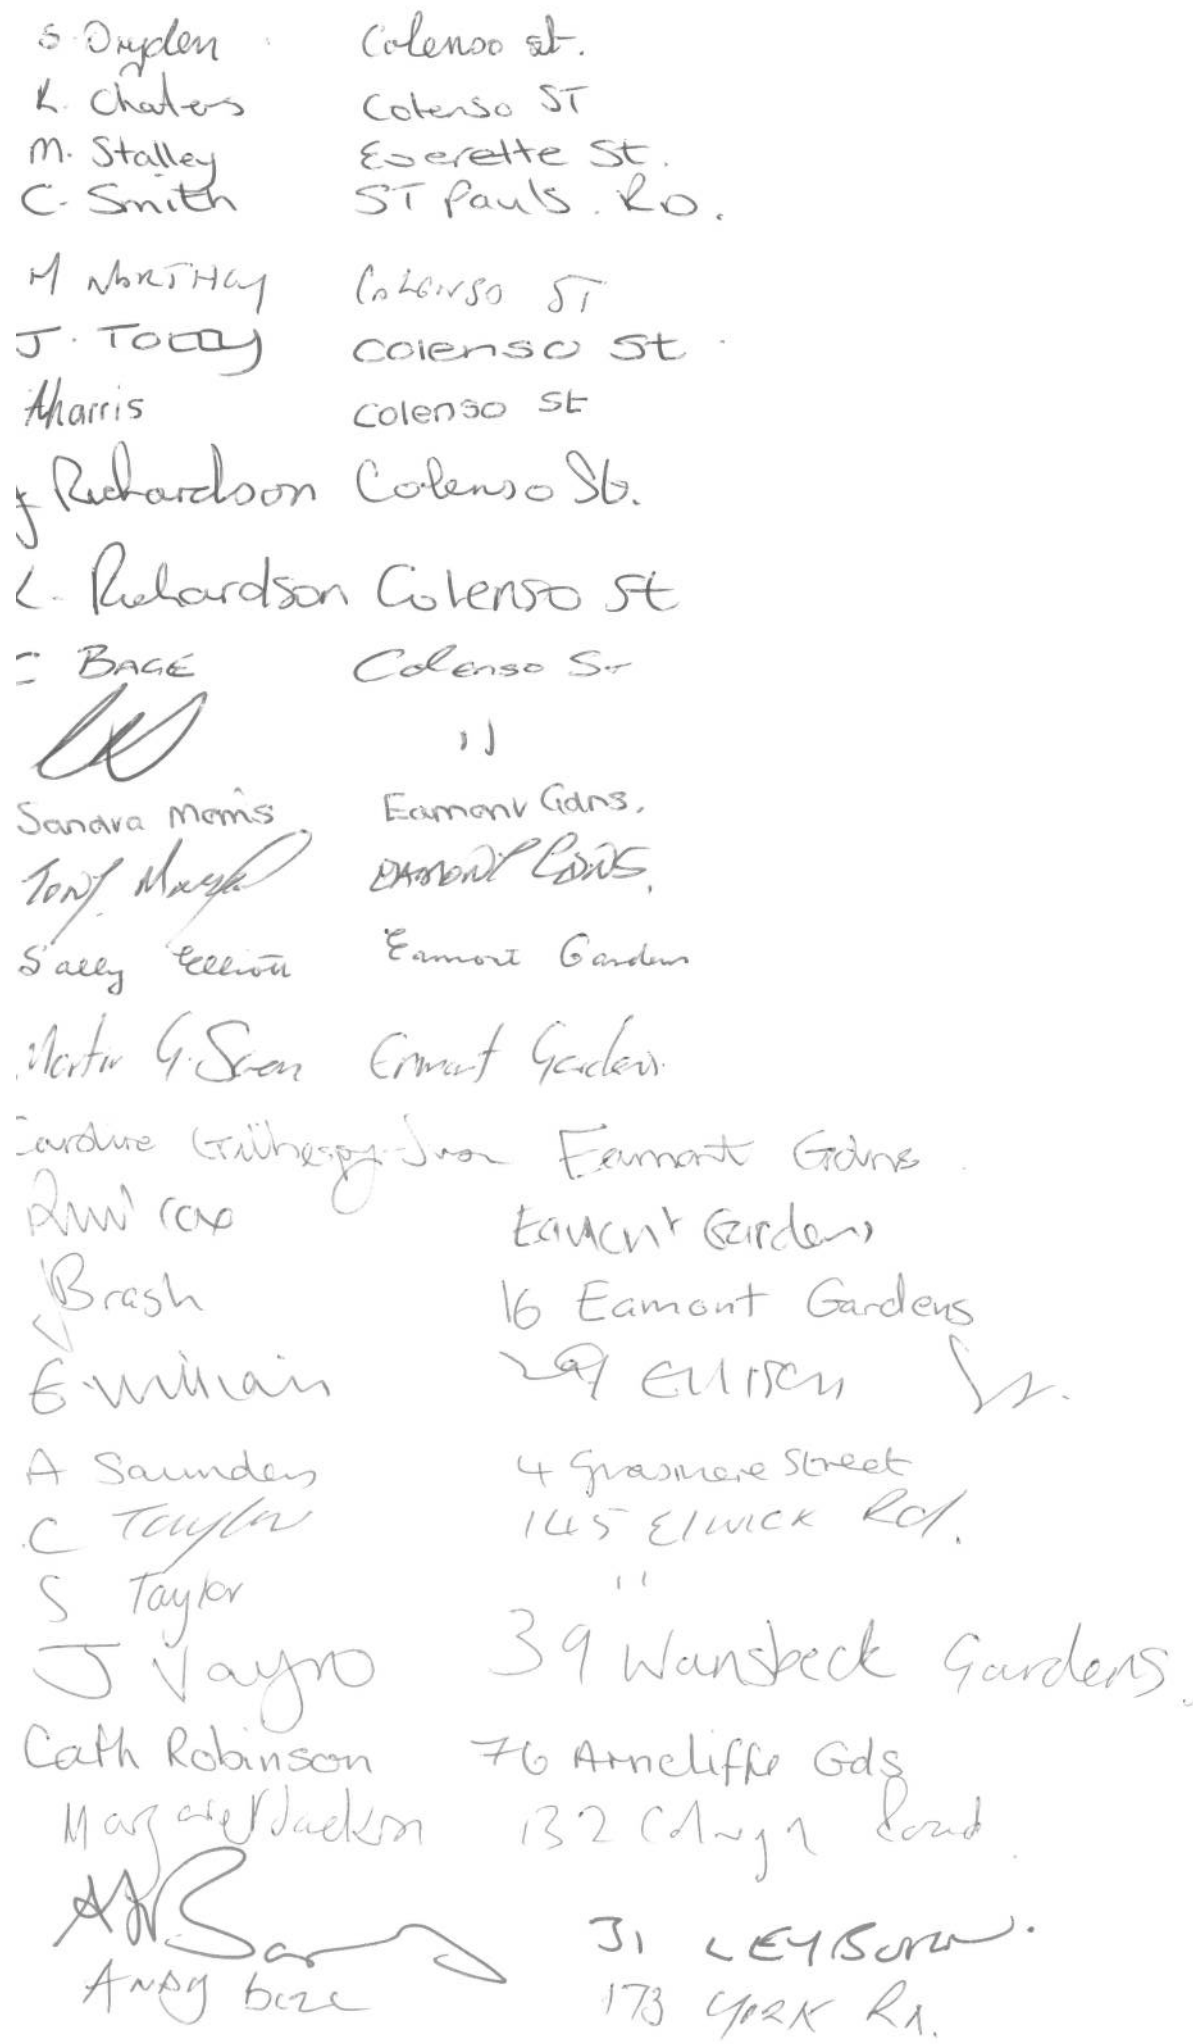 S. Dryden Colenso st.
K. Chaters Colenso ST
M. Stalley Everette St.
C. Smith ST Pauls. RD.
M NORTHEY COLENSO ST
J. TODDY Colenso St
A harris colenso st
J Richardson Colenso St.
L. Richardson Colenso St
C BAGE Colenso St
"
Sandra Morris Eamont Gdns.
TONY EAMONT GDNS.
Sally Elliott Eamont Gardens
Martin G. Swan Eamont Gardens
Caroline Gillhespy-Swan Eamont Gdns
Cox Eamont Gardens
J Brash 16 Eamont Gardens
E William 29 Ellison St.
A Saunders 4 Grasmere Street
C Taylor 145 Elwick Rd.
S Taylor "
J Vayro 39 Wansbeck Gardens.
Cath Robinson 76 Arncliffe Gds
Margaret Jackson 132 Road
31 LEYBURN.
ANDY 173 YORK Rd.